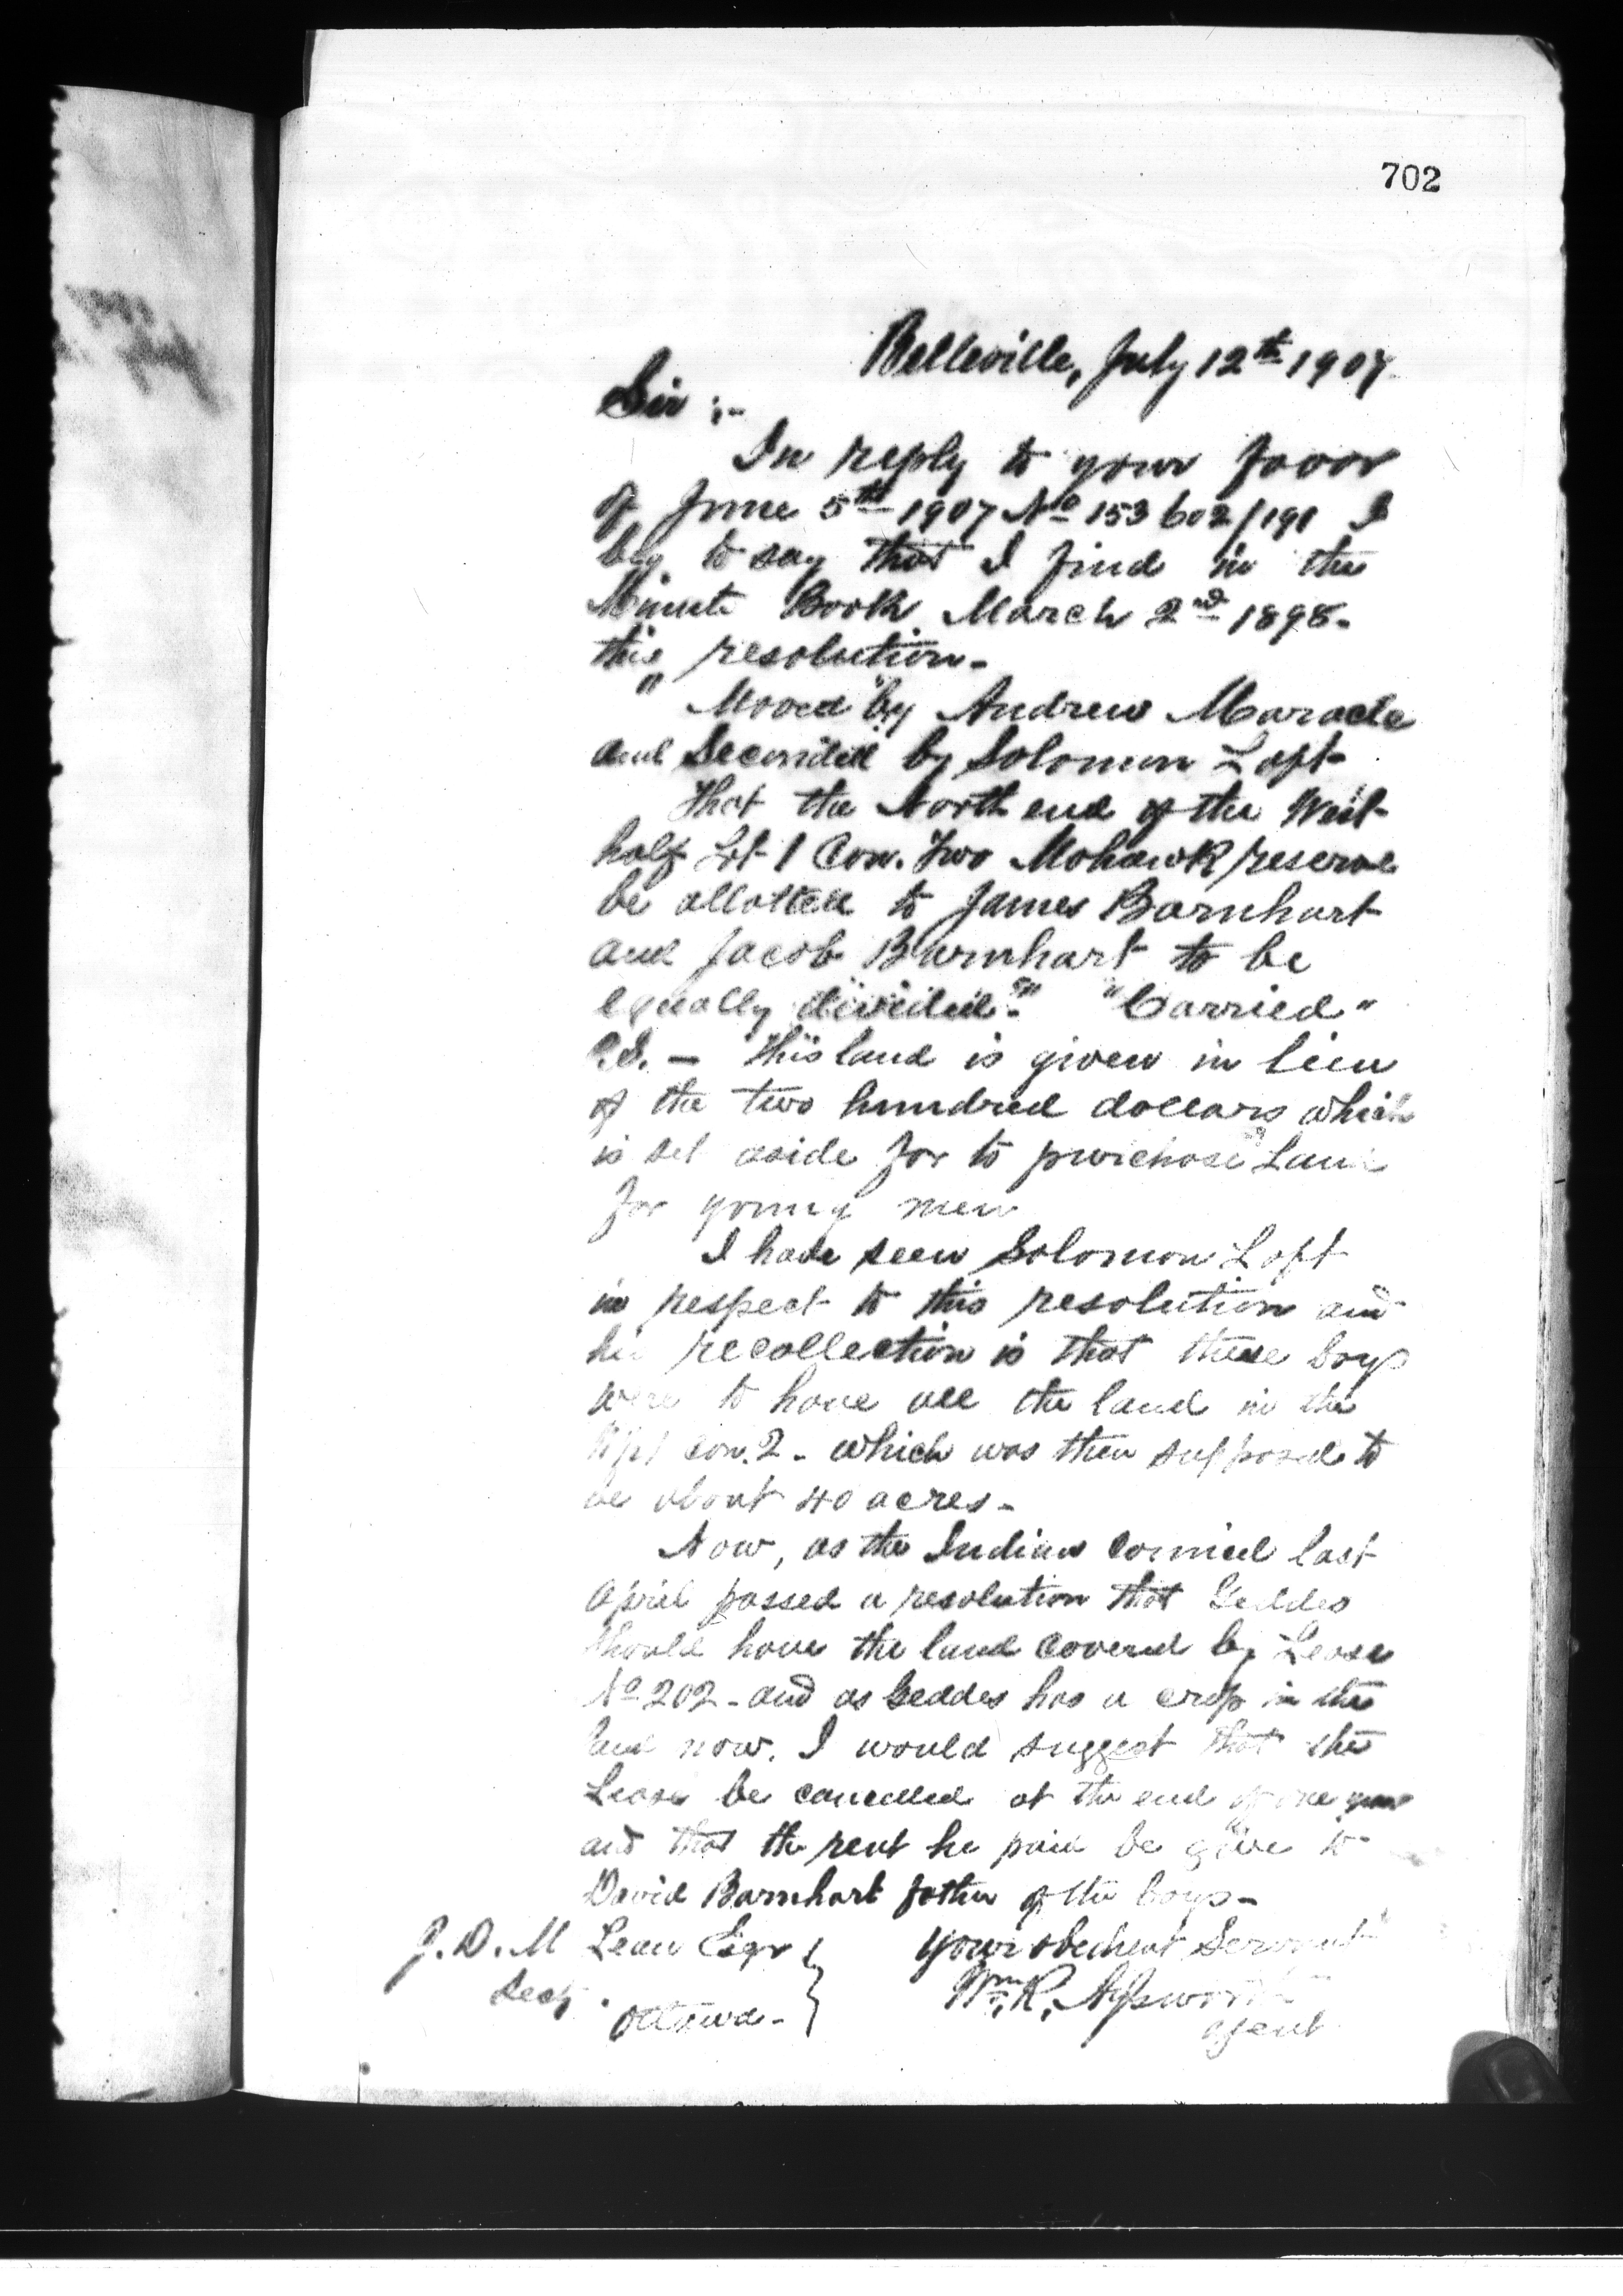 702
Belleville, July 12th 1907
Sir :-
In reply to your favor
of June 5th 1907 No 153602/191 I
beg to say that I find in the
Minute Book March 2nd 1898-
this resolution-
" Moved by Andrew Maracle
and Seconded by Solomon Loft
That the North end of the West
half Lot 1 Con. Two Mohawk reserve
be allotted to James Barnhart
and Jacob Barnhart to be
equally divided." "Carried"
P.S. - This land is given in lieu
of the two hundred dollars which
is set aside for to purchase Land
for young men
I have seen Solomon Loft
in respect to this resolution and
his recollection is that these boys
were to have all the land in the
Con. 2 - which was then supposed to
be about 40 acres-
Now, as the Indian Council last
April passed a resolution that Geddes
should have the land covered by Lease
No 202 - and as Geddes has a crop in the
land now. I would suggest that the
Lease be cancelled at the end of one year
and that the rent he paid be give to
David Barnhart father of the boys-
J. D. M Lean Esqr
Your obedient Servant
Secy.
Wm. R.
Ottawa-
agent